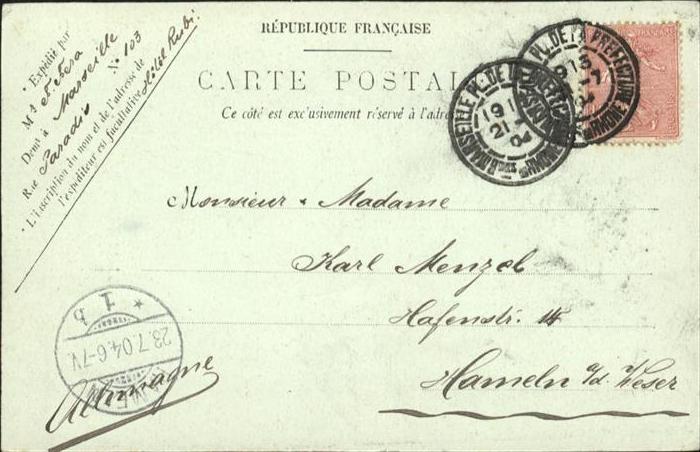 RÉPUBLIQUE FRANÇAISE
CARTE POSTAL
Ce côté est exclusivement réservé à l'adres
* Expédié par
M
Demt à Marseille
Rue Paradis No 103
* L'inscription du nom et de l'adresse de
l'expéditeur est facultative Hôtel Rubi
MARSEILLE PL. DE LA PREFECTURE
Bches DU RHONE
21
04
PL. DE LA PREFECTURE
RHONE
04
Monsieur & Madame
Karl Menzel
Hafenstr. 14
Hameln a/d. Weser
Allemagne
* 1 b
23.7.04.6-7V.